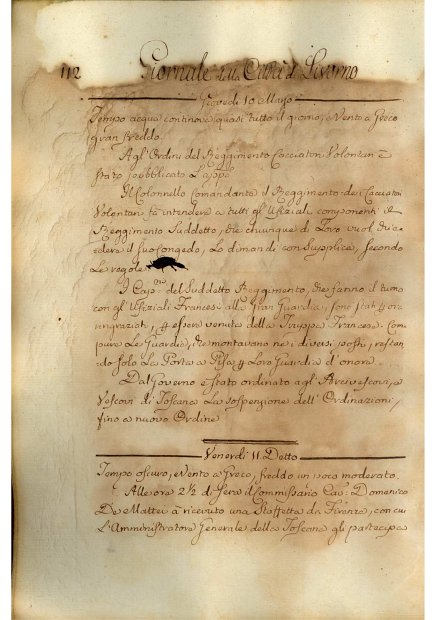 112 Giornale della Città di Livorno
Giovedi 10 Marzo
Tempo acqua continova quasi tutto il giorno, e Vento a Greco
gran freddo.
Agl'Ordini del Reggimento Cacciatori Volontari è
stato pubblicato L'app.
Il Colonnello Comandante il Reggimento de i Cacciatori
Volontari fà intendere a tutti gl'Ufiziali componenti il
Reggimento Suddetto, che chiunque di Loro vuol chie
dere il suo Congedo, Lo dimandi con Supplica, Secondo
Le regole
I Cap. del Suddetto Reggimento, che fanno il turno
con gl'Ufiziali Francesi alla Gran Guardia, sono stati ora
ringraziati, p essere venuta della Truppa Francese Com
pure Le Guardie, che montavano nei diversi posti, restan
do solo La Porta a Pisa p Loro Guardia d'onore.
Dal Governo è Stato ordinato agl'Arcivescovi, e
Vescovi di Toscana La sospenzione dell'Ordinazioni
fino a nuovo Ordine
Venerdi 11. Detto
Tempo oscuro, e Vento a Greco, freddo un poco moderato.
Alle ore 2½ di Sera il Commissario Cav. Domenico
De Mattei à ricevuto una Staffetta da Firenze, con cui
L'Amministratore Generale della Toscana gli partecipa